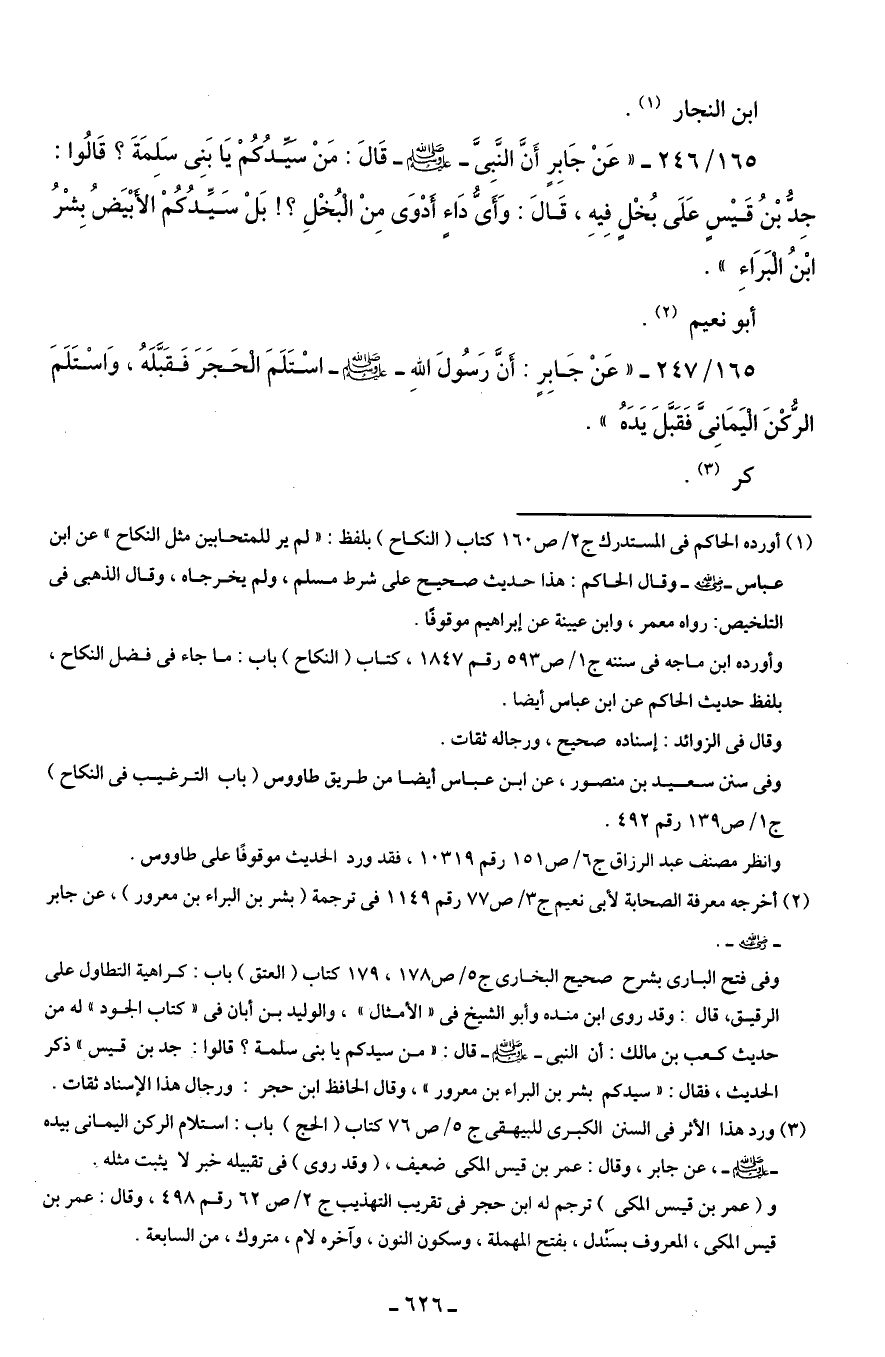 ابن النجار (١) .
١٦٥/ ٢٤٦ ـ « عَنْ جَابِرٍ أَنَّ النَّبِىَّ ـ ﷺ ـ قَالَ : مَنْ سَيِّدُكُمْ يَا بَنِى سَلِمَةَ ؟ قَالُوا :
جِدُّ بْنُ قَيْسٍ عَلَى بُخْلٍ فِيهِ ، قَالَ : وَأَىُّ دَاءٍ أَدْوَى مِنْ الْبُخْلِ ؟! بَلْ سَيِّدُكُمْ الأَبْيَضُ بِشْرُ
ابْنُ الْبَرَاءِ » .
أبو نعيم (٢) .
١٦٥/ ٢٤٧ ـ « عَنْ جَابِرٍ : أَنَّ رَسُولَ اللهِ ـ ﷺ ـ اسْتَلَمَ الْحَجَرَ فَقَبَّلَهُ ، وَاسْتَلَمَ
الرُّكْنَ الْيَمَانِىَّ فَقَبَّلَ يَدَهُ » .
كر (٣) .
(١) أورده الحاكم فى المستدرك ج٢/ ص١٦٠ كتاب ( النكاح ) بلفظ : « لم ير للمتحابين مثل النكاح » عن ابن
عباس ـ رضي الله عنه ـ وقال الحاكم : هذا حديث صحيح على شرط مسلم ، ولم يخرجاه ، وقال الذهبى فى
التلخيص: رواه معمر ، وابن عيينة عن إبراهيم موقوفًا .
وأورده ابن ماجه فى سننه ج١/ ص٥٩٣ رقم ١٨٤٧ ، كتاب ( النكاح ) باب : ما جاء فى فضل النكاح ،
بلفظ حديث الحاكم عن ابن عباس أيضا .
وقال فى الزوائد : إسناده صحيح ، ورجاله ثقات .
وفى سنن سعيد بن منصور ، عن ابن عباس أيضا من طريق طاووس ( باب الترغيب فى النكاح )
ج١/ ص١٣٩ رقم ٤٩٢ .
وانظر مصنف عبد الرزاق ج٦/ ص١٥١ رقم ١٠٣١٩ ، فقد ورد الحديث موقوفًا على طاووس .
(٢) أخرجه معرفة الصحابة لأبى نعيم ج٣/ ص٧٧ رقم ١١٤٩ فى ترجمة ( بشر بن البراء بن معرور ) ، عن جابر
ـ رضي الله عنه ـ .
وفى فتح البارى بشرح صحيح البخارى ج٥/ ص١٧٨ ، ١٧٩ كتاب ( العتق ) باب : كراهية التطاول على
الرقيق، قال : وقد روى ابن منده وأبو الشيخ فى « الأمثال » ، والوليد بن أبان فى « كتاب الجود » له من
حديث كعب بن مالك : أن النبى ـ ﷺ ـ قال : « من سيدكم يا بنى سلمة ؟ قالوا : جد بن قيس » ذكر
الحديث ، فقال : « سيدكم بشر بن البراء بن معرور » ، وقال الحافظ ابن حجر : ورجال هذا الإسناد ثقات .
(٣) ورد هذا الأثر فى السنن الكبرى للبيهقى ج ٥/ ص ٧٦ كتاب ( الحج ) باب : استلام الركن اليمانى بيده
ـ ﷺ ـ ، عن جابر ، وقال : عمر بن قيس المكى ضعيف ، ( وقد روى ) فى تقبيله خبر لا يثبت مثله .
و ( عمر بن قيس المكى ) ترجم له ابن حجر فى تقريب التهذيب ج ٢/ ص ٦٢ رقم ٤٩٨ ، وقال : عمر بن
قيس المكى ، المعروف بسَنْدل ، بفتح المهملة ، وسكون النون ، وآخره لام ، متروك ، من السابعة .
ـ ٦٢٦ ـ